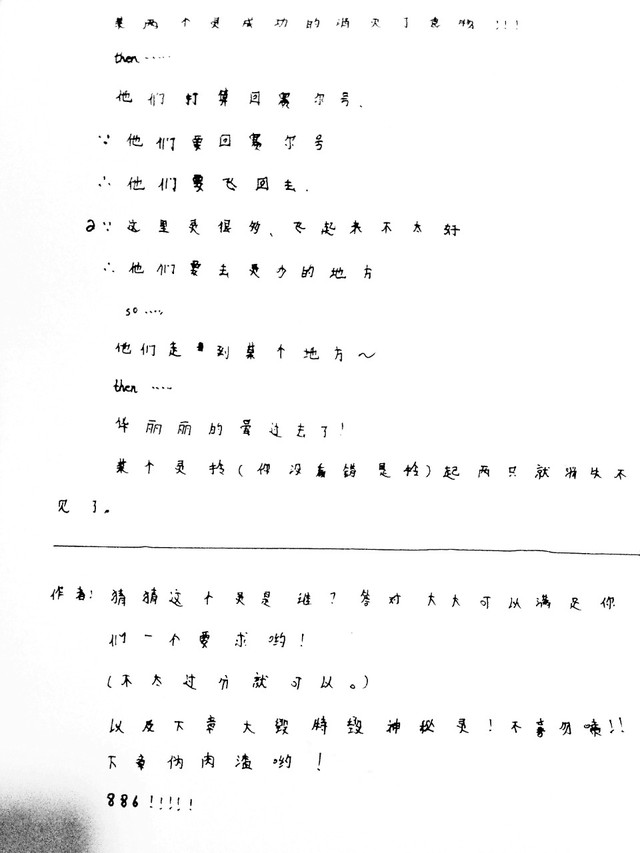 某两个灵成功的消灭了怪物!!!
then……
他们打算回赛尔号、
∵他们要回赛尔号
∴他们要飞回去.
2∵这里灵很多、飞起来不太好
∴他们要去灵少的地方
so……
他们走到某个地方～
then……
华丽丽的晕过去了!
某个灵拎(你没看错是拎)起两只就消失不
见了。
作者:猜猜这个灵是谁?答对大大可以满足你
们一个要求哟!
(不太过分就可以。)
以及下章大毁特毁神秘灵!不喜勿喷!!
下章伪肉渣哟!
886!!!!!